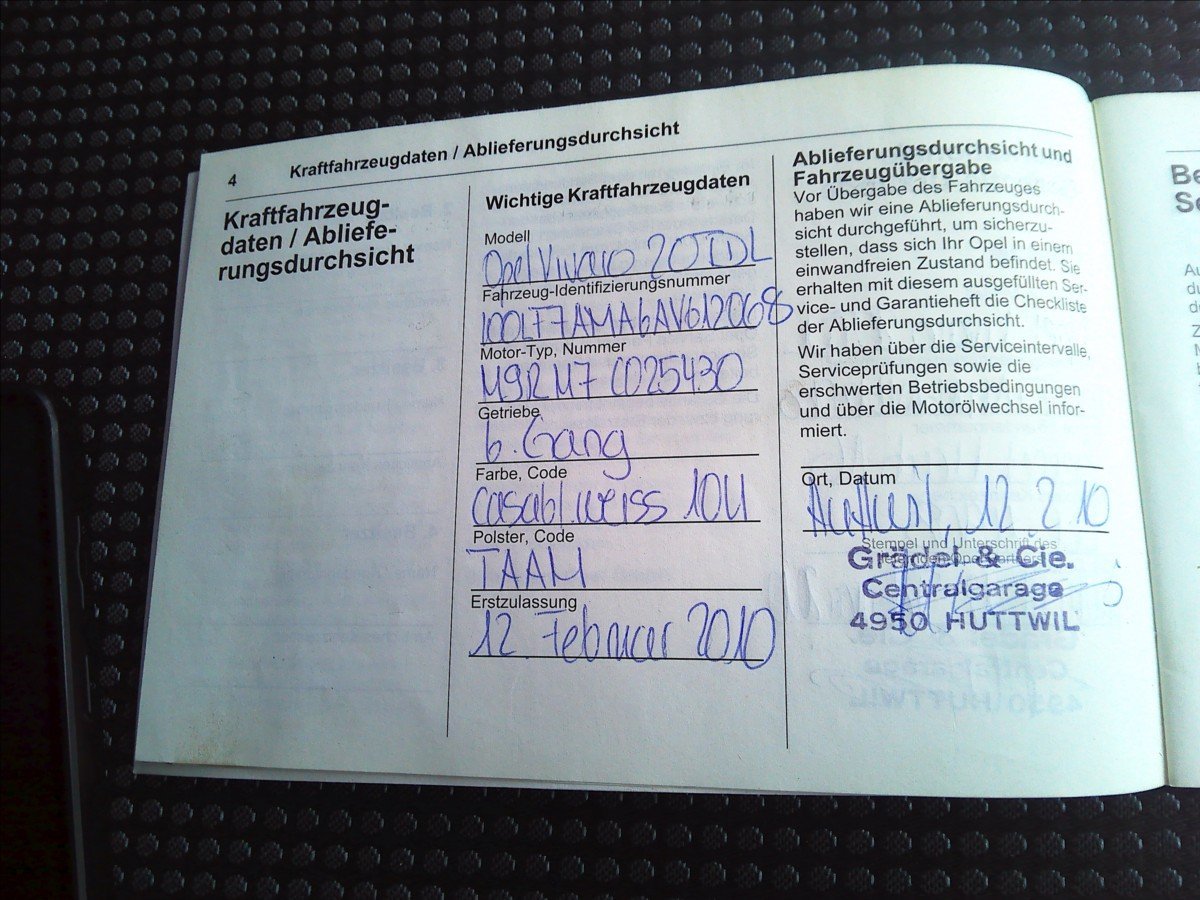 4
Kraftfahrzeugdaten / Ablieferungsdurchsicht
Kraftfahrzeug-
daten / Abliefe-
rungsdurchsicht
Wichtige Kraftfahrzeugdaten
Modell
Opel Vivaro 20TDL
Fahrzeug-Identifizierungsnummer
Motor-Typ, Nummer
M9RM7 C025430
Getriebe
6. Gang
Farbe, Code
Casabl.weiss 10U
Polster, Code
TAAM
Erstzulassung
12. Februar 2010
Ablieferungsdurchsicht und
Fahrzeugübergabe
Vor Übergabe des Fahrzeuges
haben wir eine Ablieferungsdurch-
sicht durchgeführt, um sicherzu-
stellen, dass sich Ihr Opel in einem
einwandfreien Zustand befindet. Sie
erhalten mit diesem ausgefüllten Ser-
vice- und Garantieheft die Checkliste
der Ablieferungsdurchsicht.
Wir haben über die Serviceintervalle,
Serviceprüfungen sowie die
erschwerten Betriebsbedingungen
und über die Motorölwechsel infor-
miert.
Ort, Datum
12.2.10
Stempel und Unterschrift des
Grädel & Cie.
Centralgarage
4950 HUTTWIL